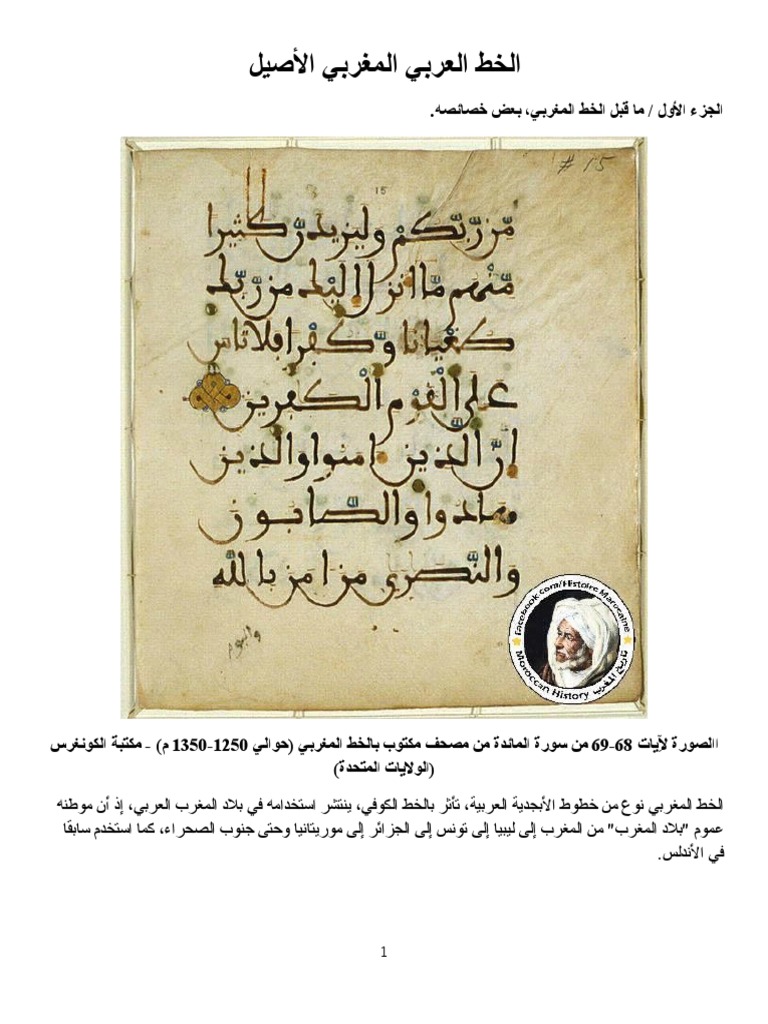 الخط العربي المغربي الأصيل
الجزء الأول / ما قبل الخط المغربي، بعض خصائصه.
# 15
15
مِّن رَّبِّكُمْ وليزيدنّ كثيرا
مّنهم مّا انزل إليك من رّبّك
طغيانا وّكفْرا فلا تاس
على الْقوْم الْكٰفرين
إنّ الّذين ءامنوا والذين
هادوا والصّٰبون
والنّصٰرى من ـامن بالله
واليوم
facebook.com/Histoire.Marocaine
Moroccan History تاريخ المغرب
االصورة لآيات 68-69 من سورة المائدة من مصحف مكتوب بالخط المغربي (حوالي 1250-1350 م) - مكتبة الكونغرس
(الولايات المتحدة)
الخط المغربي نوع من خطوط الأبجدية العربية، تأثر بالخط الكوفي، ينتشر استخدامه في بلاد المغرب العربي، إذ أن موطنه
عموم "بلاد المغرب" من المغرب إلى ليبيا إلى تونس إلى الجزائر إلى موريتانيا وحتى جنوب الصحراء، كما استخدم سابقا
في الأندلس.
1